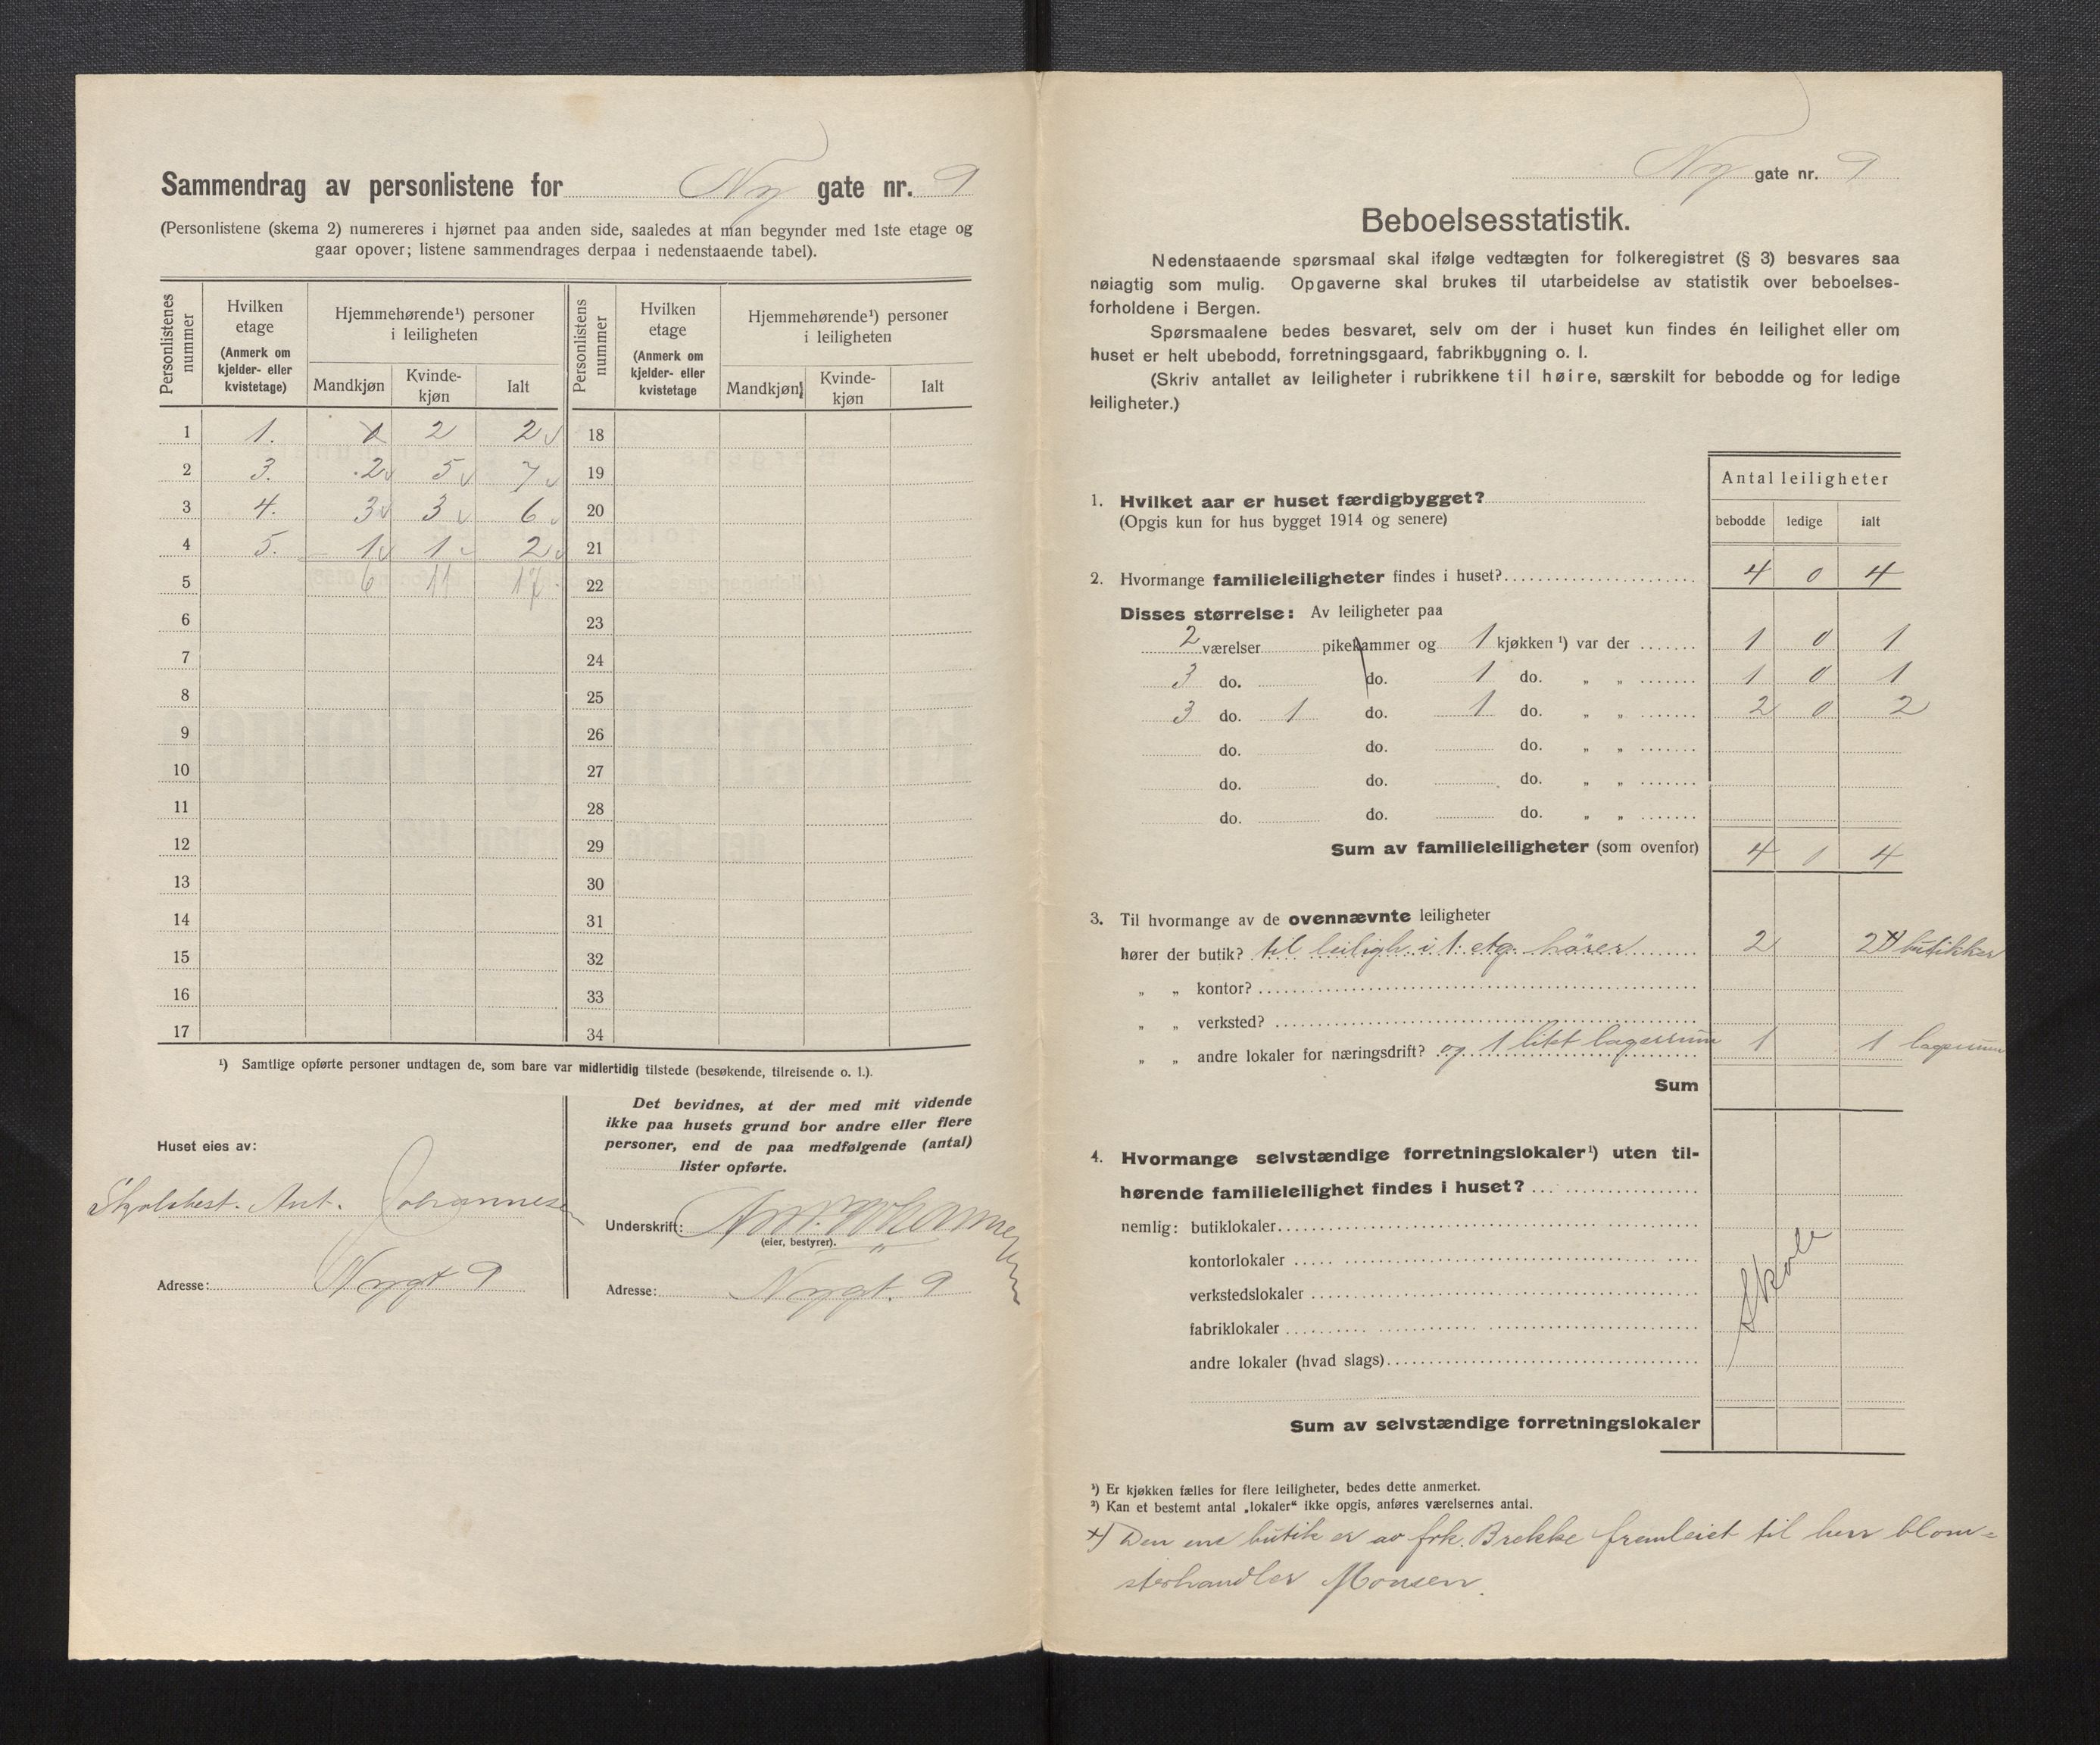 Sammendrag av personlistene for Ny gate nr. 9
(Personlistene (skema 2) numereres i hjørnet paa anden side, saaledes at man begynder med 1ste etage og
gaar opover; listene sammendrages derpaa i nedenstaaende tabel).
Personlistenes nummer
Hvilken etage (Anmerk om kjelder- eller kvistetage)
Hjemmehørende¹) personer i leiligheten
Mandkjøn Kvinde-kjøn Ialt
Personlistens nummer
Hvilken etage (Anmerk om kjelder- eller kvistetage
Hjemmehørende¹) personer i leiligheten
Mandkjøn Kvinde-kjøn Ialt
1 1. 2 2 18
2 3. 2 5 7 19
3 4. 3 3 6 20
4 5. 1 1 2 21
5 6 11 17 22
6 23
7 24
8 25
9 26
10 27
11 28
12 29
13 30
14 31
15 32
16 33
17 34
¹) Samtlige opførte personer undtagen de, som bare var midlertidig tilstede (besøkende, tilreisende o. l.).
Huset eies av:
Ant. Johannesen
Adresse: Nygt 9
Det bevidnes, at der med mit vidende
ikke paa husets grund bor andre eller flere
personer, end de paa medfølgende (antal)
lister opførte.
Underskrift: Ant. Johannesen
(eier, bestyrer).
Adresse: Nygt. 9
Ny gate nr. 9
Beboelsesstatistik.
Nedenstaaende spørsmaal skal ifølge vedtægten for folkeregistret (§ 3) besvares saa
nøiagtig som mulig. Opgaverne skal brukes til utarbeidelse av statistik over beboelses-
forholdene i Bergen.
Spørsmaalene bedes besvaret, selv om der i huset kun findes én leilighet eller om
huset er helt ubebodd, forretningsgaard, fabrikbygning o. l.
(Skriv antallet av leiligheter i rubrikkene til høire, særskilt for bebodde og for ledige
leiligheter.)
Antal leiligheter
bebodde ledige ialt
1. Hvilket aar er huset færdigbygget?
(Opgis kun for hus bygget 1914 og senere)
2. Hvormange familieleiligheter findes i huset? 4 0 4
Disses størrelse: Av leiligheter paa
2 værelser pikekammer og 1 kjøkken ¹) var der 1 0 1
3 do. do. 1 do. „ „ 1 0 1
3 do. 1 do. 1 do. „ „ 2 0 2
do. do. do. „ „
do. do. do. „ „
do. do. do. „ „
Sum av familieleiligheter (som ovenfor) 4 0 4
3. Til hvormange av de ovennævnte leiligheter
hører der butik? til leiligh. i 1. etg. hører 2 2 x) butikker
„ „ kontor?
„ „ verksted?
„ „ andre lokaler for næringsdrift? og 1 litet lagerrum 1 1 lagerrum
Sum
4. Hvormange selvstændige forretningslokaler¹) uten til-
hørende familieleilighet findes i huset?
nemlig: butiklokaler
kontorlokaler
verkstedslokaler
fabriklokaler
andre lokaler (hvad slags)
Skole
Sum av selvstændige forretningslokaler
¹) Er kjøkken fælles for flere leiligheter, bedes dette anmerket.
²) Kan et bestemt antal „lokaler“ ikke opgis, anføres værelsernes antal.
x) Den ene butik er av frk. Brekke fremleiet til herr blom=
sterhandler Monsen.